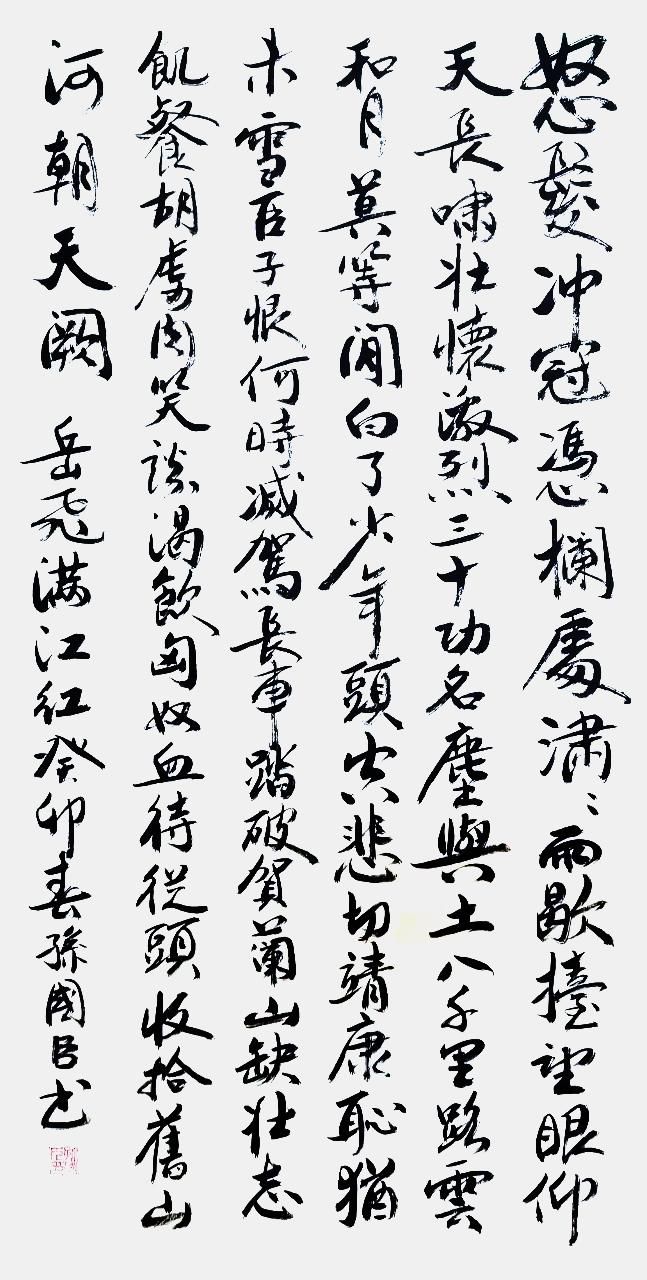 怒髮冲冠憑欄處潚〻雨歇擡望眼仰
天長嘯壯懷激烈三十功名塵與土八千里路雲
和月莫等閒白了少年頭空悲切靖康恥猶
未雪臣子恨何時滅駕長車踏破賀蘭山缺壯志
飢餐胡虜肉笑談渴飲匈奴血待從頭收拾舊山
河朝天闕 岳飛滿江紅癸卯春孫國臣书